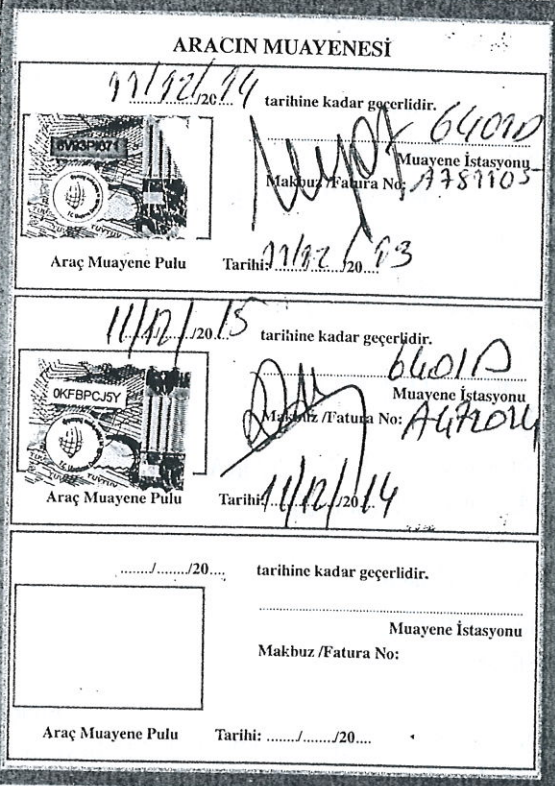 ARACIN MUAYENESİ
11/12/2014 tarihine kadar geçerlidir.
6401D
6V93PI671
Muayene İstasyonu
Makbuz /Fatura No: A781105
TUVTUV
Araç Muayene Pulu Tarihi: 11/12/2013
11/12/2015 tarihine kadar geçerlidir.
6401D
0KFBPCJ5Y
Muayene İstasyonu
Makbuz /Fatura No:
Araç Muayene Pulu Tarihi: 11/12/2014
......../......../20.... tarihine kadar geçerlidir.
Muayene İstasyonu
Makbuz /Fatura No:
Araç Muayene Pulu Tarihi: ......../......../20....